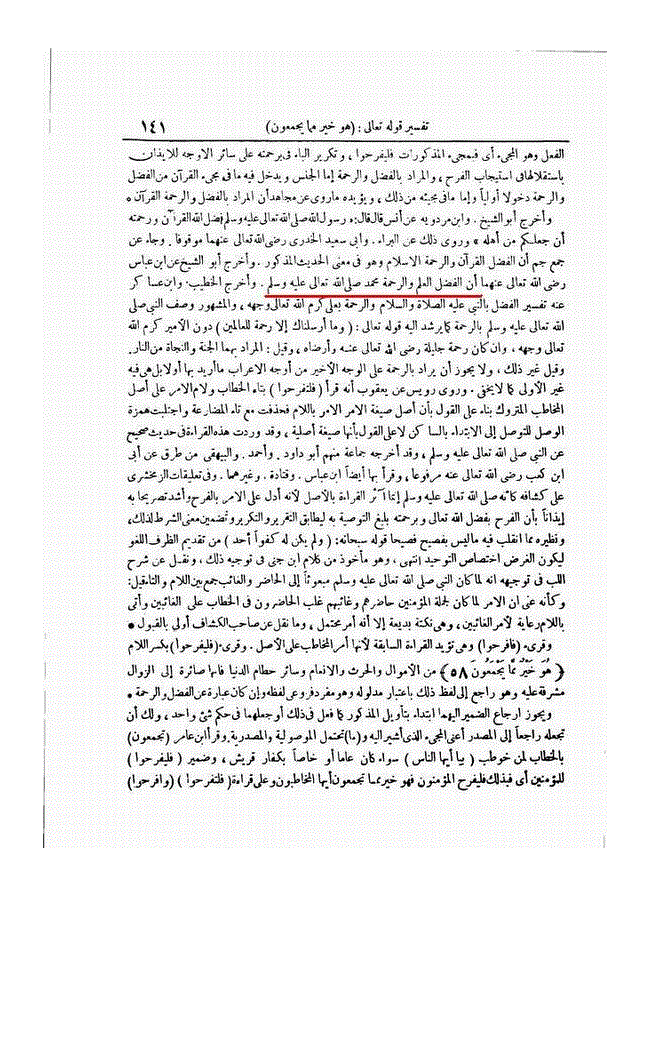 تفسير قوله تعالى : (هو خير مما يجمعون) ١٤١
الفعل وهو المجيء أى فبمجيء المذكورات فليفرحوا ، وتكرير الباء فى برحمته على سائر الاوجه للايذان
باستقلالها فى استيجاب الفرح ، والمراد بالفضل والرحمة إما الجنس ويدخل فيه ما فى مجيء القرآن من الفضل
والرحمة دخولا أولياً وإما ما فى مجيئه من ذلك ، ويؤيده ماروى عن مجاهد أن المراد بالفضل والرحمة القرآن •
وأخرج أبو الشيخ . وابن مردويه عن أنس قال قال : « رسول الله صلى الله تعالى عليه وسلم فضل الله القرآن ورحمته
أن جعلكم من أهله » وروى ذلك عن البراء . وأبى سعيد الخدرى رضى الله تعالى عنهما موقوفا . وجاء عن
جمع جم أن الفضل القرآن والرحمة الاسلام وهو فى معنى الحديث المذكور . وأخرج أبو الشيخ عن ابن عباس
رضى الله تعالى عنهما أن الفضل العلم والرحمة محمد صلى الله تعالى عليه وسلم . وأخرج الخطيب . وابن عساكر
عنه تفسير الفضل بالنبي عليه الصلاة والسلام والرحمة بعلى كرم الله تعالى وجهه ، والمشهور وصف النبى صلى
الله تعالى عليه وسلم بالرحمة كما يرشد اليه قوله تعالى : ( وما أرسلناك إلا رحمة للعالمين ) دون الأمير كرم الله
تعالى وجهه ، وان كان رحمة جليلة رضى الله تعالى عنه وأرضاه ، وقيل : المراد بهما الجنة والنجاة من النار .
وقيل غير ذلك ، ولا يجوز أن يراد بالرحمة على الوجه الأخير من أوجه الاعراب ما أريد بها أولا بل هى فيه
غير الأولى كما لا يخفى . وروى رويس عن يعقوب أنه قرأ ( فلتفرحوا ) بتاء الخطاب ولام الامر على أصل
المخاطب المتروك بناء على القول بأن أصل صيغة الامر الامر باللام فحذفت مع تاء المضارعة واجتلبت همزة
الوصل للتوصل إلى الابتداء بالساكن لا على القول بأنها صيغة أصلية ، وقد وردت هذه القراءة فى حديث صحيح
عن النبى صلى الله تعالى عليه وسلم ، وقد أخرجه جماعة منهم أبو داود . وأحمد . والبيهقى من طرق عن أبى
ابن كعب رضى الله تعالى عنه مرفوعا ، وقرأ بها أيضاً ابن عباس . وقتادة . وغيرهما . وفى تعليقات الزمخشرى
على كشافه كأنه صلى الله تعالى عليه وسلم إنما آثر القراءة بالأصل لأنه أدل على الامر بالفرح وأشد تصريحا به
إيذاناً بأن الفرح بفضل الله تعالى وبرحمته بليغ التوصية به ليطابق التقرير والتكرير وتضمين معنى الشرط لذلك،
ونظيره مما انقلب فيه ما ليس بفصيح فصيحا قوله سبحانه : ( ولم يكن له كفواً أحد ) من تقديم الظرف اللغو
ليكون الغرض اختصاص التوحيد انتهى ، وهو مأخوذ من كلام ابن جنى فى توجيه ذلك ، ونقل عن شرح
اللب فى توجيهه انه لما كان النبى صلى الله تعالى عليه وسلم مبعوثاً إلى الحاضر والغائب جمع بين اللام والتاء قيل:
وكأنه عنى ان الامر لما كان لجملة المؤمنين حاضرهم وغائبهم غلب الحاضرون فى الخطاب على الغائبين وأتى
باللام رعاية لأمر الغائبين ، وهى نكتة بديعة إلا أنه أمر محتمل ، وما نقل عن صاحب الكشاف أولى بالقبول •
وقرىء ( فافرحوا ) وهى تؤيد القراءة السابقة لأنها أمر المخاطب على الأصل . وقرىء ( فليفرحوا ) بكسر اللام
﴿ هُوَ خَيْرٌ مِّمَّا يَجْمَعُونَ ٥٨ ﴾ من الأموال والحرث والانعام وسائر حطام الدنيا فانها صائرة إلى الزوال
مشرفة عليه وهو راجع إلى لفظ ذلك باعتبار مدلوله وهو مفرد فروعى لفظه وإن كان عبارة عن الفضل والرحمة •
ويجوز ارجاع الضمير اليهما ابتداء بتأويل المذكور كما فعل فى ذلك أو جعلهما فى حكم شئ واحد ، ولك أن
تجعله راجعاً إلى المصدر أعنى المجىء الذى أشير اليه و(ما) تحتمل الموصولية والمصدرية وقرأ ابن عامر (تجمعون)
بالخطاب لمن خوطب ( بيا أيها الناس ) سواء كان عاما أو خاصاً بكفار قريش ، وضمير ( فليفرحوا )
للمؤمنين أى فبذلك فليفرح المؤمنون فهو خير مما تجمعون أيها المخاطبون وعلى قراءة ( فلتفرحوا ) (وافرحوا)